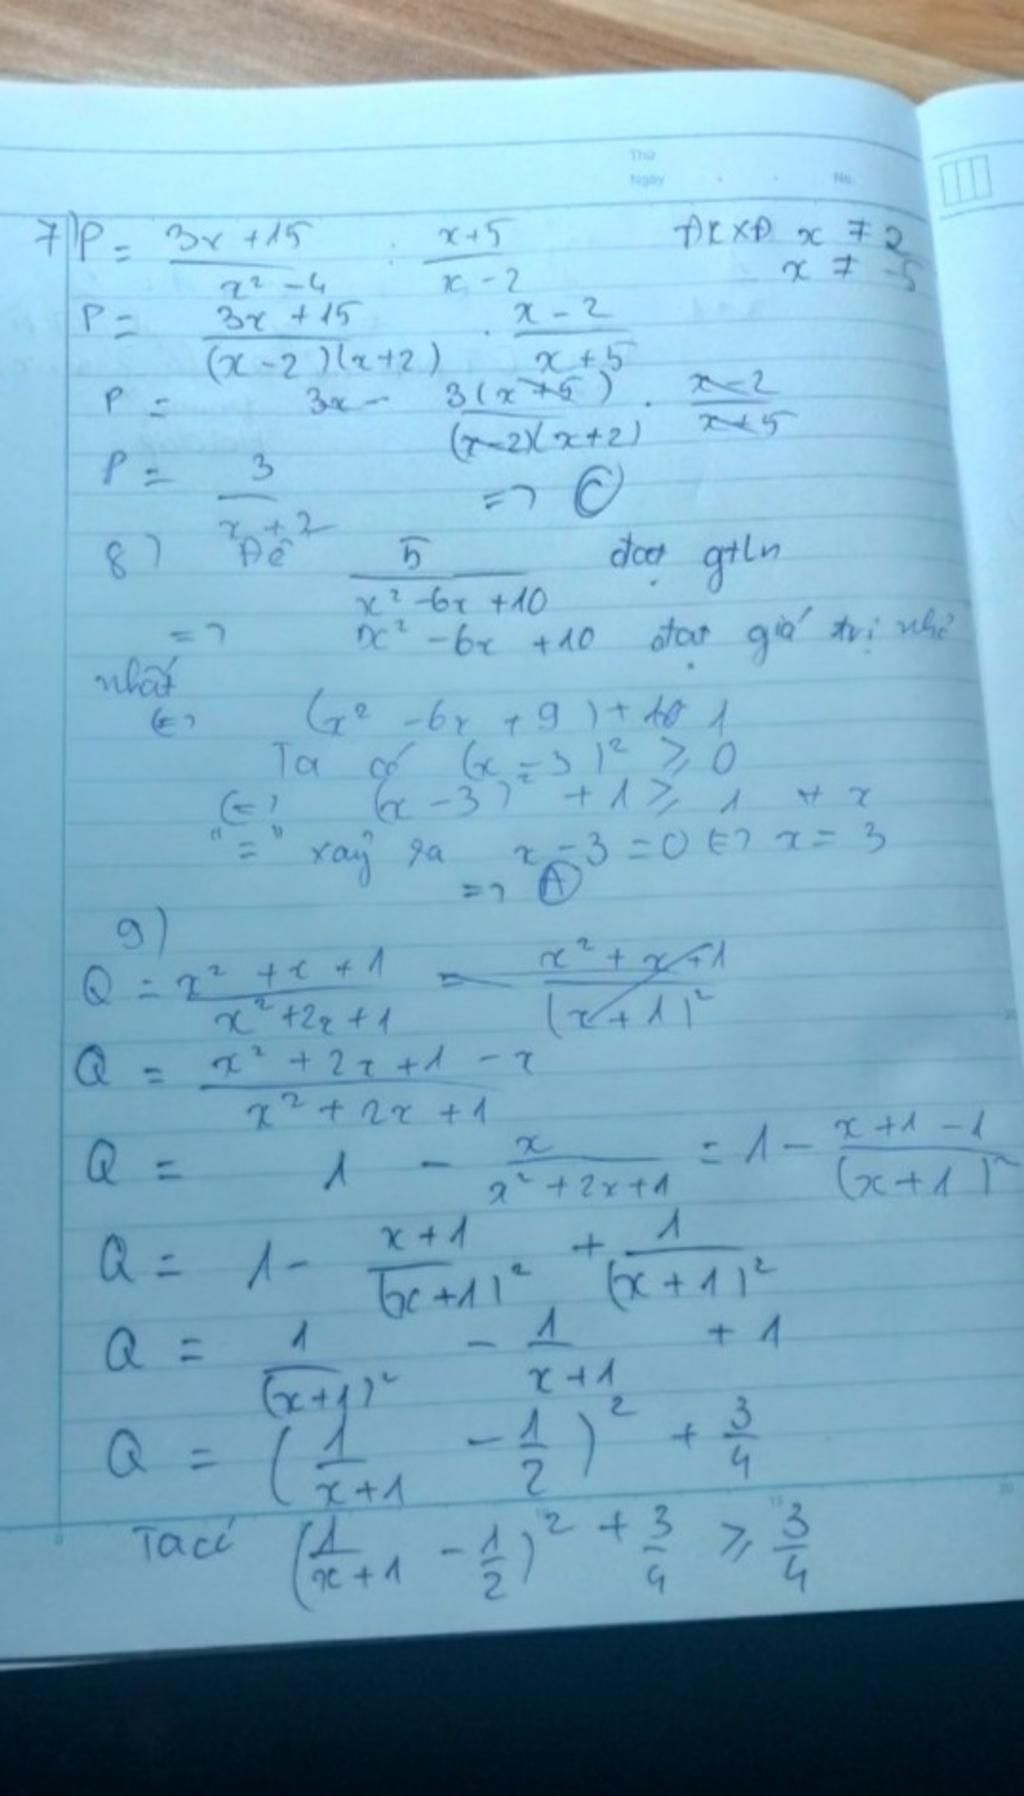 Thứ
Ngày . . No.
7) P = (3x + 15)/(x² - 4) : (x + 5)/(x - 2) ĐKXĐ x ≠ 2
x ≠ -5
P = (3x + 15)/((x - 2)(x + 2)) . (x - 2)/(x + 5)
P = 3x - 3(x + 5)/((x - 2)(x + 2)) . (x - 2)/(x + 5)
P = 3/(x + 2) => C
8) Để 5/(x² - 6x + 10) đạt gtln
=> x² - 6x + 10 đạt giá trị nhỏ
nhất
<=> (x² - 6x + 9) + 1
Ta có (x - 3)² ≥ 0
<=> (x - 3)² + 1 ≥ 1 ∀ x
"=" xảy ra x - 3 = 0 <=> x = 3
=> A
9)
Q = (x² + x + 1)/(x² + 2x + 1) = (x² + x + 1)/(x + 1)²
Q = (x² + 2x + 1 - x)/(x² + 2x + 1)
Q = 1 - x/(x² + 2x + 1) = 1 - (x + 1 - 1)/(x + 1)²
Q = 1 - (x + 1)/(x + 1)² + 1/(x + 1)²
Q = 1/(x + 1)² - 1/(x + 1) + 1
Q = (1/(x + 1) - 1/2)² + 3/4
Ta có (1/(x + 1) - 1/2)² + 3/4 ≥ 3/4